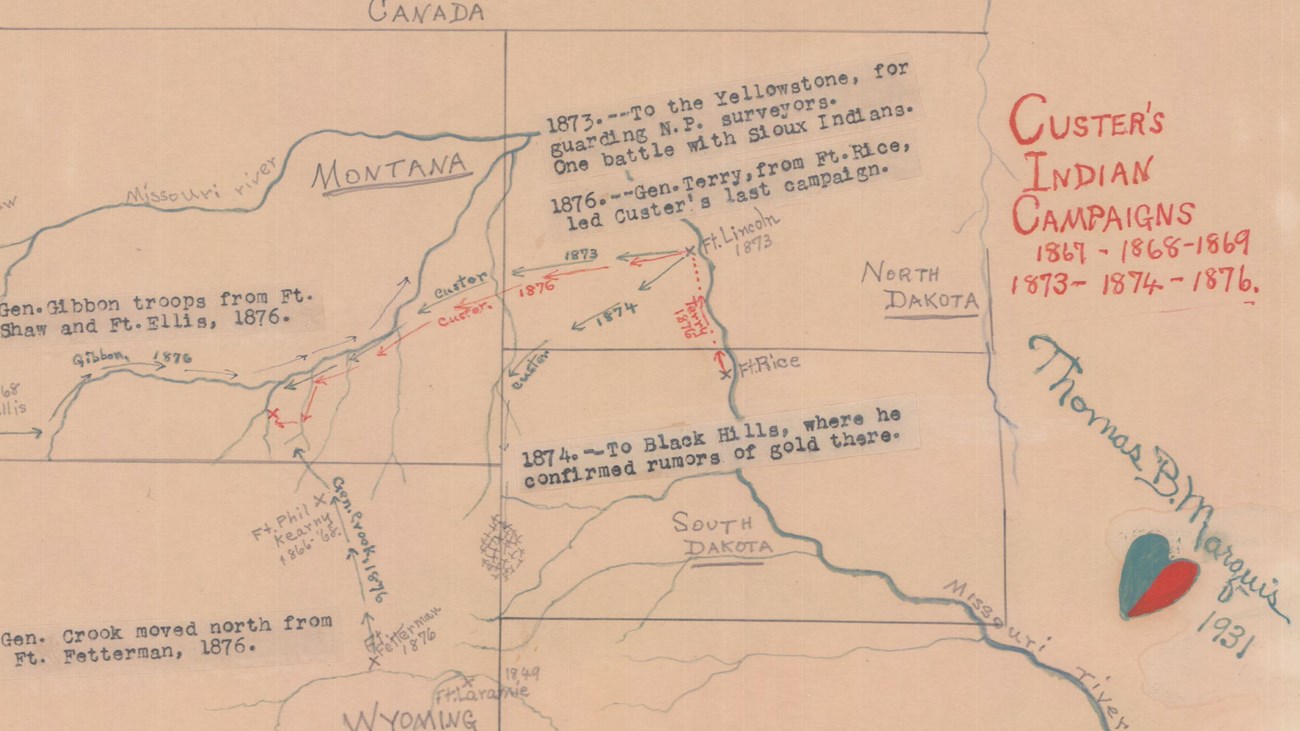 CANADA
1873.--To the Yellowstone, for
guarding N.P. surveyors.
One battle with Sioux Indians.
1876.--Gen.Terry,from Ft.Rice,
led Custer's last campaign.
CUSTER'S
INDIAN
CAMPAIGNS
1867 - 1868-1869
1873- 1874 - 1876.
MONTANA
Missouri river
Ft.Lincoln
1873
1873
1876
1874
Custer
Custer.
Custer
Terry
1876
NORTH
DAKOTA
Gen.Gibbon troops from Ft.
Shaw and Ft.Ellis, 1876.
Gibbon, 1876
68
llis
Ft.Rice
Thomas B. Marquis
1931
1874.--To Black Hills, where he
confirmed rumors of gold there.
Ft. Phil
Kearny
1866-'68.
Gen.Crook,1876
SOUTH
DAKOTA
Missouri river
Gen. Crook moved north from
Ft. Fetterman, 1876.
Ft.
Fetterman
1876
1849
Ft.Laramie
WYOMING